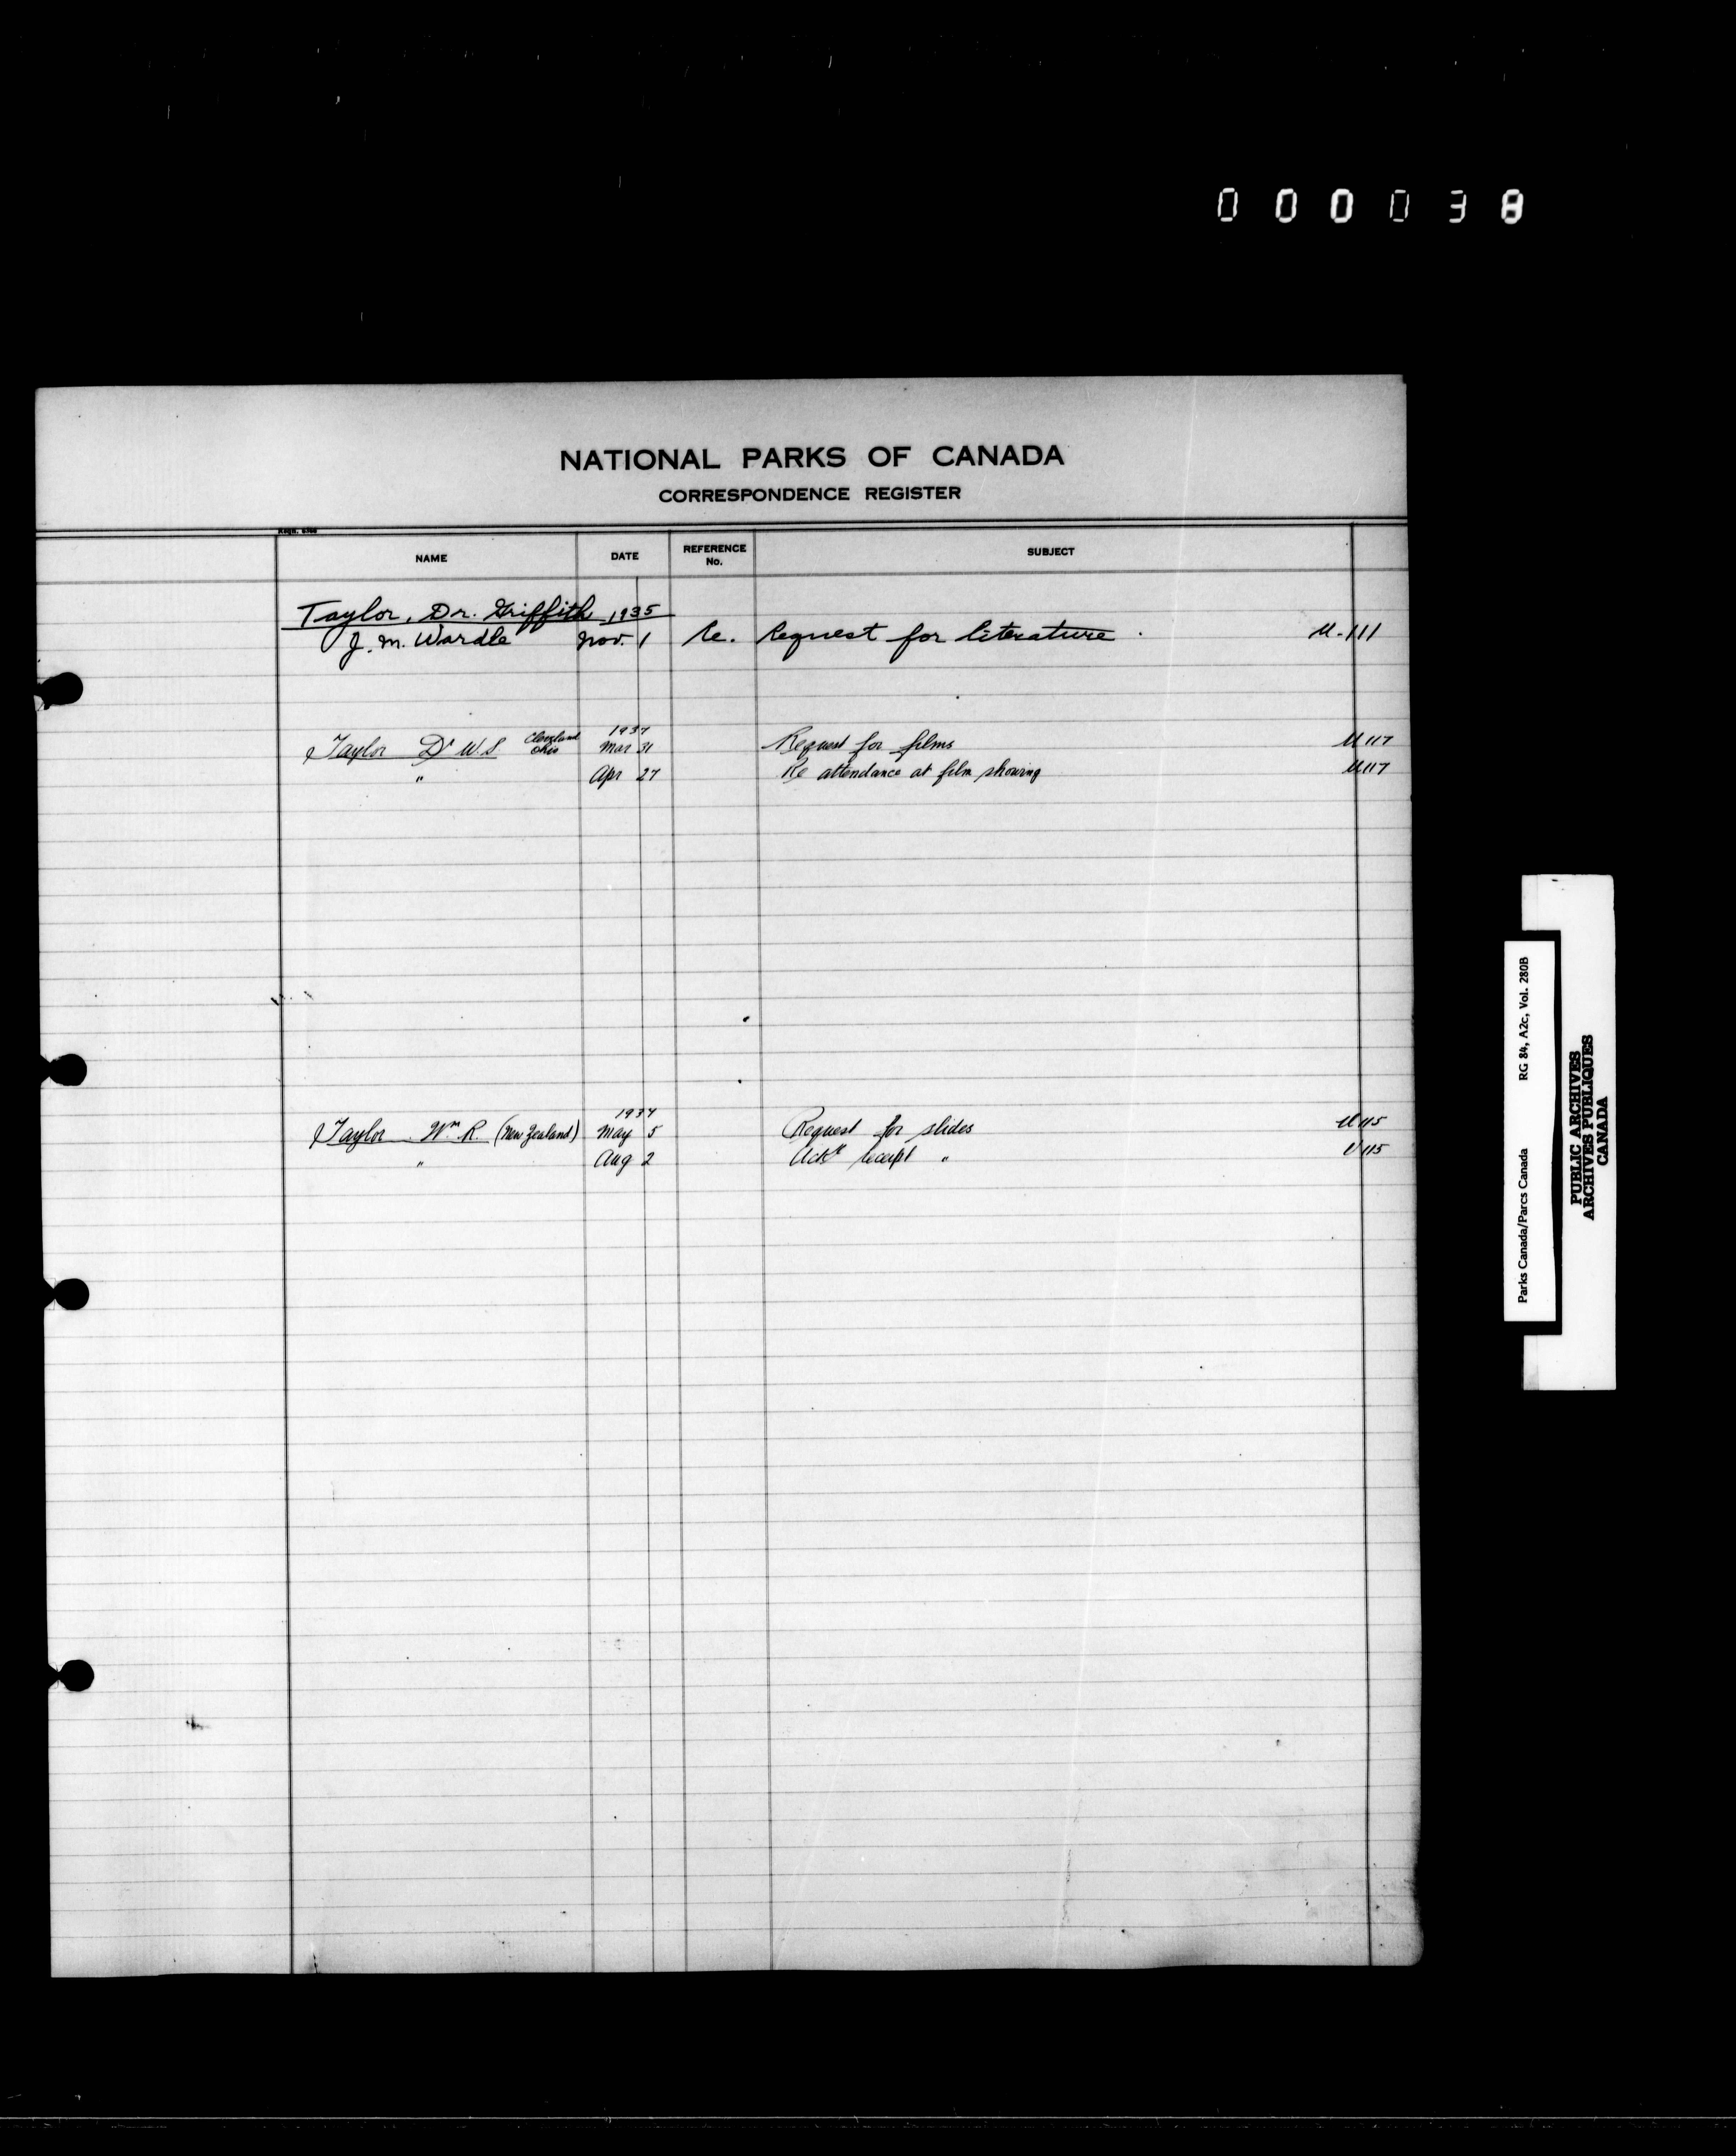 000038
NATIONAL PARKS OF CANADA
CORRESPONDENCE REGISTER
NAME DATE REFERENCE No. SUBJECT
Taylor, Dr. Griffith 1935
J. M. Wardle Nov. 1 Re. Request for literature. U-111
1937
Taylor Dr W.S Cleveland Ohio Mar 31 Request for films U117
" Apr 27 Re attendance at film showing U117
Taylor Wm R. (New Zealand) May 5 Request for slides U115
" Aug 2 receipt " U115
Parks Canada/Parcs Canada RG 84, A2c, Vol. 280B
PUBLIC ARCHIVES
ARCHIVES PUBLIQUES
CANADA